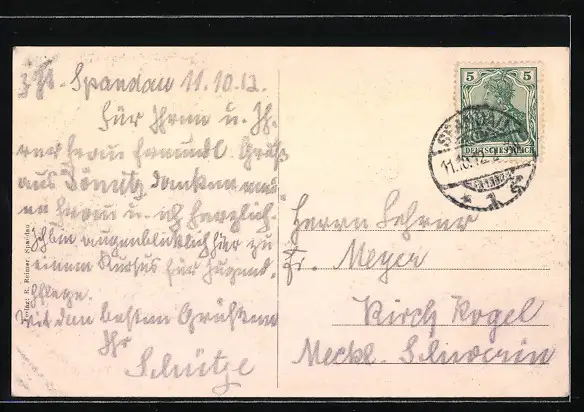 Spandau 11.10.12.
Für Ihren u. Ih-
rer Frau freundl. Gruß
aus Dömitz danken mei-
ne Frau u. ich herzlich.
Ich bin augenblicklich hier zu
einem Kursus für Jugend-
pflege.
Mit den besten Grüßen
Ihr
Schütze
Verlag: R. Reimer, Spandau
5 5
DEUTSCHES REICH
SPANDAU
11.10.12
* 1 s
Herrn Lehrer
Fr. Meyer
Kirch Kogel
Meckl. Schwerin